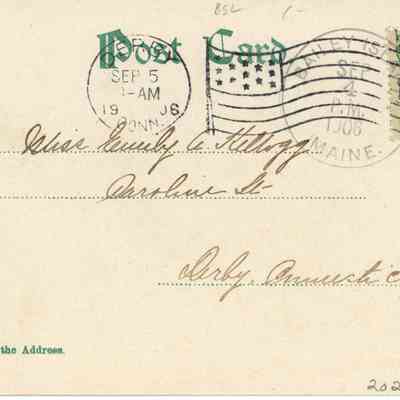 BSL 1-
Post Card
DERBY
SEP 5
-AM
19 06
CONN.
BAILEY ISL
SEP
4
P.M.
1906
MAINE.
Miss Emily A Kellogg
Caroline St
Derby, Connecticu
the Address.
202